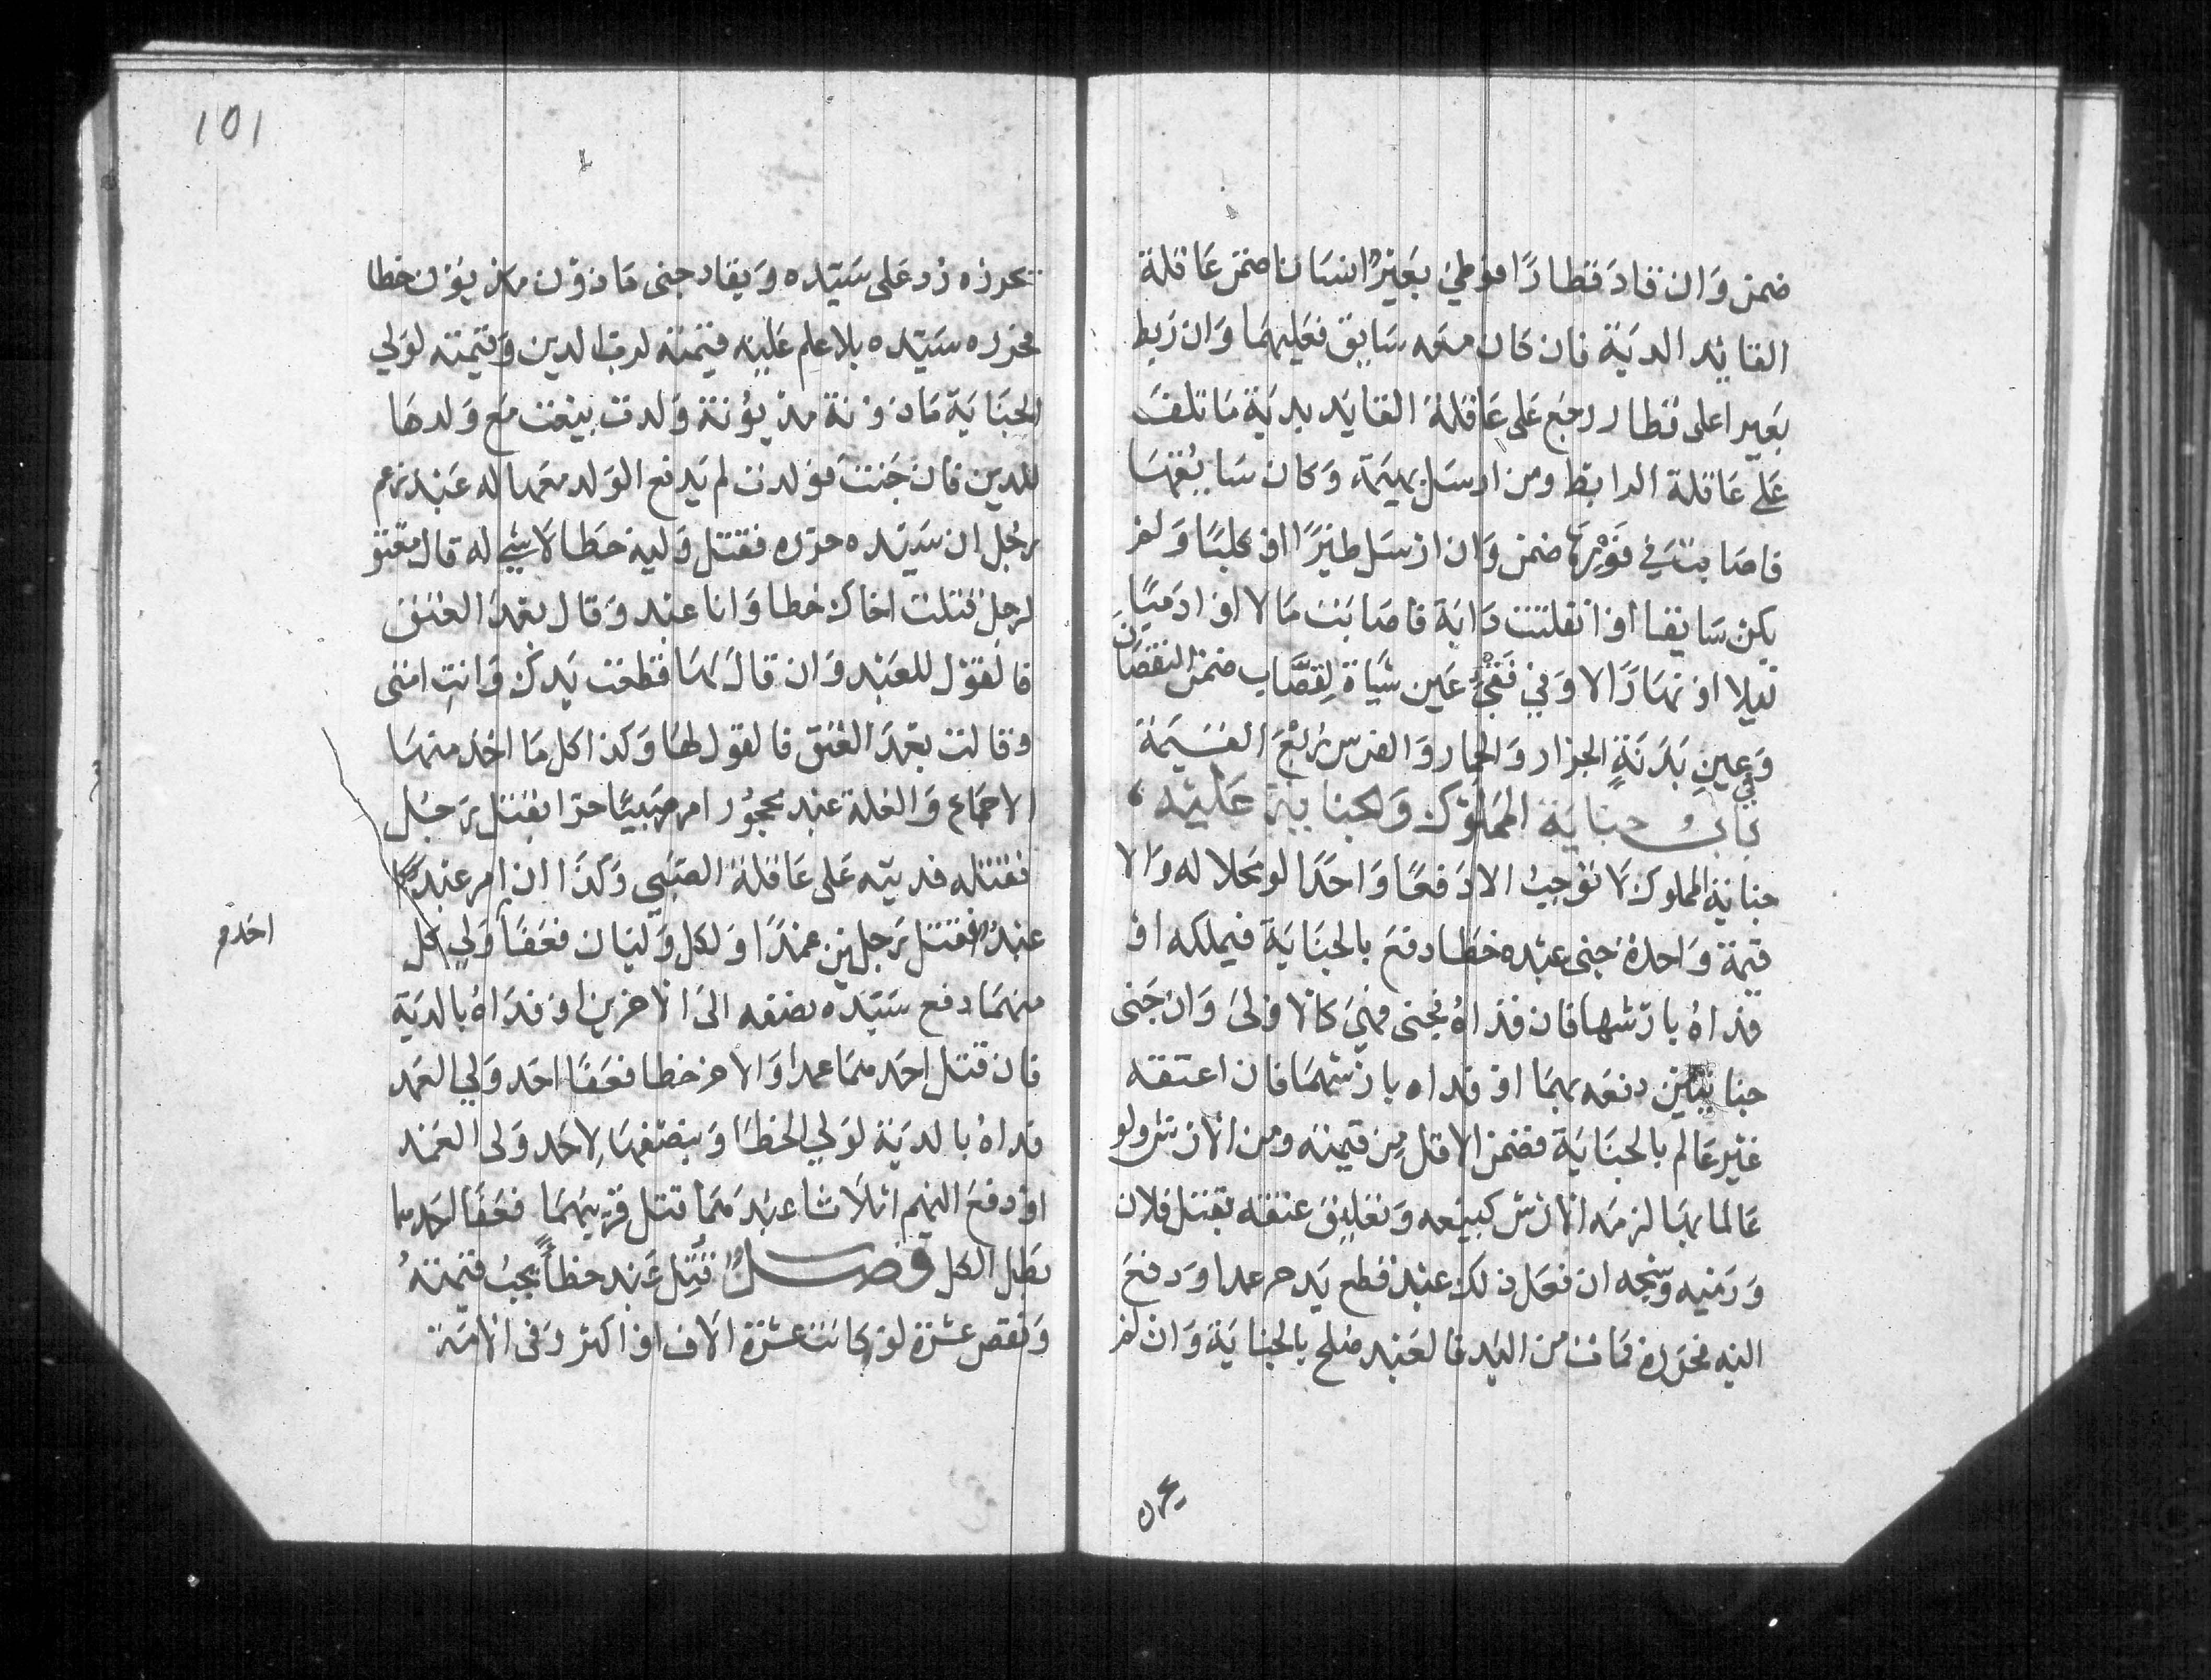 ضمن وان قاد قطارا فوطي بعير انسانا ضمن عاقلة
القايد الدية فان كان معه سايق فعليهما وان ربط
بعيرا على قطار رجع على عاقلة القايد بدية ما تلف
على عاقلة الرابط ومن ارسل بهيمة وكان سايقها
فاصابت في فورها ضمن وان ارسل طيرا او كلبا ولم
يكن سايقا او انفلتت دابة فاصابت مالا او ادميا
ليلا او نهارا لا وفي فقئ عين شاة لقصاب ضمن النقصان
وفي عين بدنة الجزار والحمار والفرس ربع القيمة
باب جناية المملوك والجناية عليه
جناية المملوك لا توجب الا دفعا واحدا لو محلا له والا
قيمة واحدة جنى عبده خطا دفع بالجناية فيملكه او
فداه بارشها فان فداه فجنى فهي كالاولى وان جنى
جنايتين دفعه بهما او فداه بارشهما فان اعتقه
غير عالم بالجناية ضمن الاقل من قيمته ومن الارش ولو
عالما بها لزمه الارش كبيعه وتعليق عتقه بقتل فلان
ورميه وشجه ان فعل ذلك عبد قطع يد حر عمدا ودفع
اليه فحرره فمات من اليد فالعبد صلح بالجناية وان لم
يحرره
١٥١
يحرره رد على سيده ويقاد جنى ماذون مديون خطا
فحرره سيده بلا علم عليه قيمته لرب الدين وقيمته لولي
الجناية ماذونة مديونة ولدت بيعت مع ولدها
للدين فان جنت فولدت لم يدفع الولد معها له عبد زعم
رجل ان سيده حرره فقتل وليه خطا لا شي له قال معتق
لرجل قتلت اخاك خطا وانا عبد وقال بعد العتق
فالقول للعبد وان قال لها قطعت يدك وانت امتى
وقالت بعد العتق فالقول لها وكذا كل ما اخذ منها
الا الجماع والغلة عبد محجور امر صبيا حرا بقتل رجل
فقتله فديته على عاقلة الصبي وكذا ان امر عبدا
عبد قتل رجلين عمدا ولكل وليان فعفا ولي كل
احد م
منهما دفع سيده نصفه الى الاخرين او فداه بالدية
فان قتل احدهما عمدا والاخر خطا فعفا احد ولي العمد
فداه بالدية لولي الخطا وبنصفها لاحد ولى العمد
او دفع اليهم اثلاثا عبدهما قتل قريبهما فعفا احدهما
بطل الكل فصل قتل عبد خطا يجب قيمته
ونقص عشرة لو كانت عشرة الاف او اكثر وفى الامة